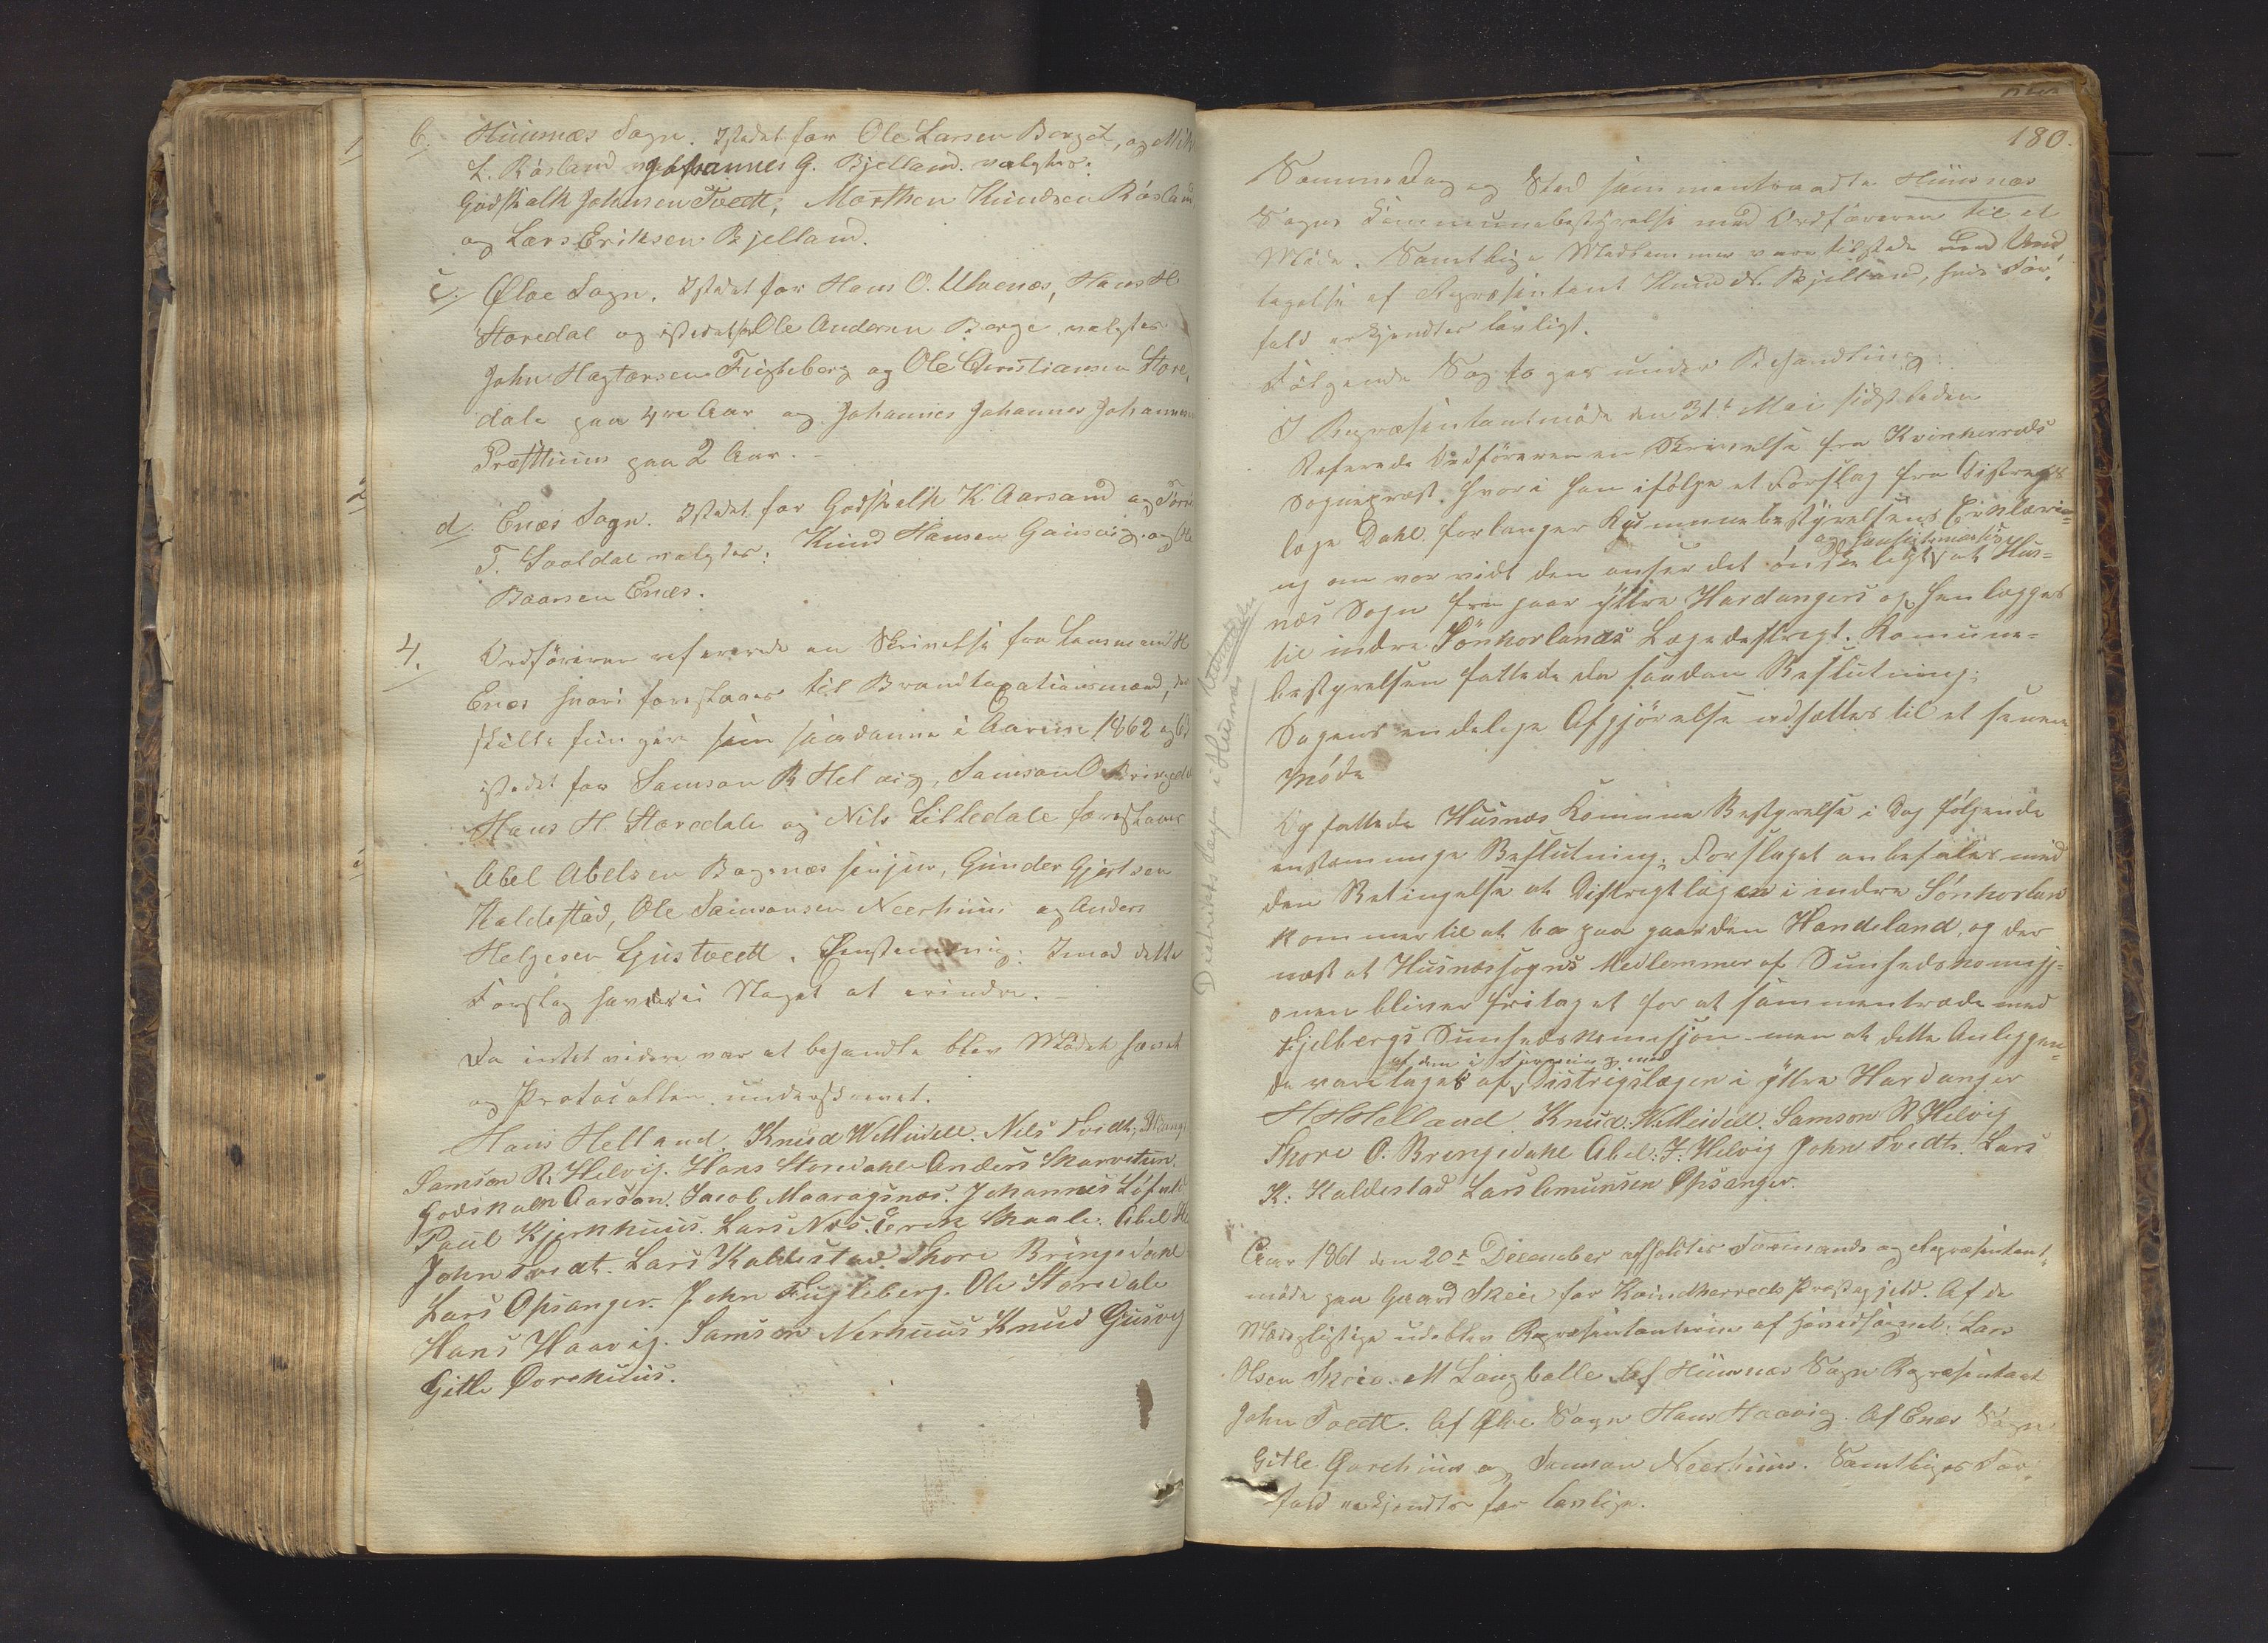 b. Huusnæs Sogn. Istedet for Ole Larsen Borget, og
L. Røsland og Johannes G. Bjelland. valgtes:
Godskalk Johnsen Tvedt, Morthen Knudsen Røsland
og Lars Eriksen Bjelland.
c. Ølve Sogn. Istedet for Hans O. Ulvenæs, Hans H
Storedal og istedetfor Ole Andersen Berge valgtes
John Hagtorsen Fugleberg og Ole Christiansen Store,
dale paa 4re Aar og Johannes Johannes Johannes
Præsthuus paa 2 Aar.
d. Enæs Sogn. Istedet for Godskalk K. Aarsand og
T. Sooldal valgtes: Knud Hansen Gausvig og Ole
Baarsen Enæs.
4. Ordføreren refererede en Skrivelse fra Lensmand H
Enæs hvori foreslaaes til Brandtaxationsmænd, der
skulle fungere som saadanne i Aarene 1862 og 63
istedet for Samson R Helvig, Samson O Bringedal
Hans H. Storedale og Nils Lilledale foreslaaes
Abel Abelsen Bogsnæs senjur, Gunder Gjertsen
Kaldestad, Ole Samsonsen Neerhuus og Anders
Helgesen Ljustvedt. Eenstemmig: Imod dette
Forslag havdes ei Noget at erindre.
Da intet videre var at behandle blev Mødet hævet
og Protocollen underskrevet.
Hans Helland Knud W Meidell. Nils Tvedt,
Samson R. Helvig. Hans Storedahle Anders Skarvetun.
Godskalk Aarsan. Jacob Maaragsnæs. Johannes
Paul Kjerkhuus. Lars Næs. Erik Skaale. Abel
John Tvedt. Lars Kaldestad. Thore Bringedahl
Lars Opsanger. John Fugleberg. Ole Storedale
Hans Haavig. Samson Nerhuus Knud Gusvig
Gitle Dorehuus.
180.
Samme Dag og Sted sammentraadte Huusnæs
Sogns Communebestyrelse med Ordføreren til et
Møde. Samtlige Medlemmer vare tilstede med Und
tagelse af Repræsentant Knud N. Bjelland, hvis For,
fald erkjendtes lovligt.
Følgende Sag toges under Behandling:
I Repræsentantmøde den 31t Mai sidstleden
Referede Ordføreren en Skrivelse fra Kvinherreds
Sognepræst hvori han ifølge et Forslag fra Distrikts
læge Dahl forlanger Kommunebestyrelsens Erklæri-
ng om vorvidt den anser det ønskeligt og hensigtsmæssigt at Hus-
næs Sogn fragaar yttre Hardangers og henlægges
til indre Sønhorlands Lægedistrigt. Komune-
bestyrelsen fattede da saadan Beslutning:
Sagens endelige Afgjørelse udsættes til et senere
Møde
Distrikts lægen i Husnæs
Og fattede Husnæs Komune Bestyrelse i Dag følgende
enstemmige Beslutning: Forslaget anbefales med
den Betingelse at Distrigtlægen i indre Sønhorland
kommer til at bo paa gaarden Handeland, og der
næst at Husnæssogns Medlemmer af Sunhedskomisj-
onen bliver fritaget for at sammentræde med
Fjelbergs Sunhedskomisjon men at dette Anliggen-
de varetages af dem i Forening med Distrigslægen i yttre Hardanger
H H Helland. Knud. W. Meidell. Samson R Helvig
Thore O. Bringedahl Abel: J. Helvig John Tvedt. Lars
K: Kaldestad Lars Amunsen Opsanger.
Aar 1861 den 20de December afholdtes Formands og Repræsentant,
møde paa Gaard Skeie for Kvindherreds Præstegjeld. Af de
Mødepligtige udeblev Repræsentanterne af Hovedsognet: Lars
Olsen Skeie. M Langballe Af Huusnæs Sogn Repræsentant
John Tvedt. Af Ølve Sogn Hans Haavig. Af Enæs Sogn
Gitle Dorehuus og Samson Neerhuus. Samtliges For,
fald erkjendtes for lovlige.